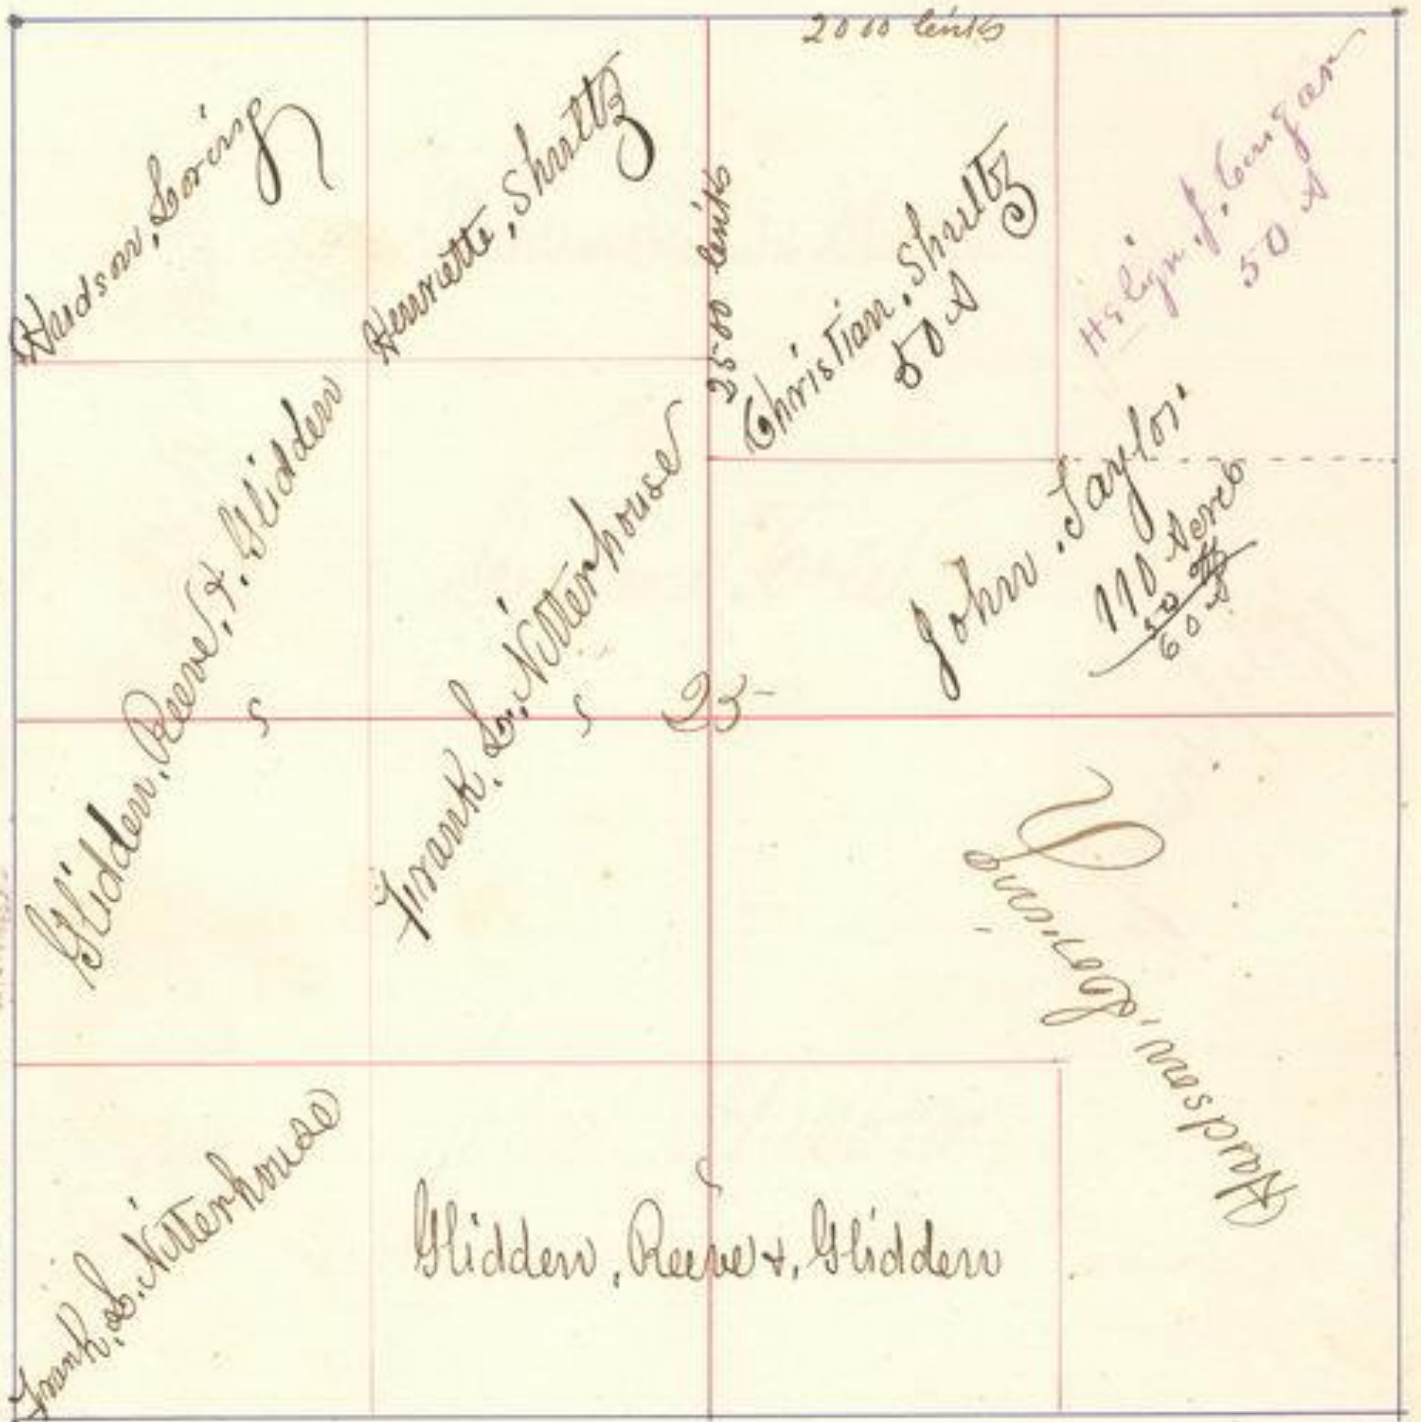 2000 links
Hudson, Loring
Henriette, Shultz
2500 links
Christian, Shultz
50 A
50 A
Glidden, Reeve, &, Glidden
Frank, L, Nitterhouse
John, Taylor
110 Acres
50
60 A
S
S
25
Hudson, Loring
Frank, L, Nitterhouse
Glidden, Reeve &, Glidden